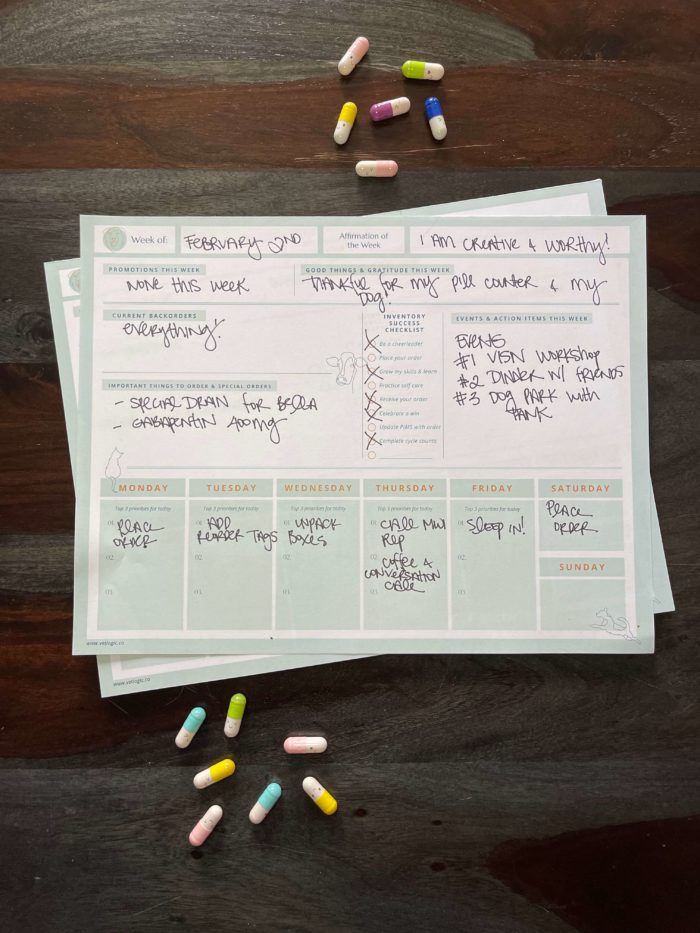 Week of:
FEBRUARY 2ND
Affirmation of
the Week
I AM CREATIVE & WORTHY!
PROMOTIONS THIS WEEK
NONE THIS WEEK
GOOD THINGS & GRATITUDE THIS WEEK
THANKFUL FOR MY PILL COUNTER & MY
DOG!
CURRENT BACKORDERS
EVERYTHING!
IMPORTANT THINGS TO ORDER & SPECIAL ORDERS
- SPECIAL DRAIN FOR BELLA
- GABAPENTIN 400mg
INVENTORY
SUCCESS
CHECKLIST
Be a cheerleader
Place your order
Grow my skills & learn
Practice self care
Receive your order
Celebrate a win
Update PIMS with order
Complete cycle counts
EVENTS & ACTION ITEMS THIS WEEK
EVENTS
#1 VISN WORKSHOP
#2 DINNER W/ FRIENDS
#3 DOG PARK WITH
TANK
MONDAY
Top 3 priorities for today
01. PLACE
ORDER
02.
03.
TUESDAY
Top 3 priorities for today
01. ADD
REORDER TAGS
02.
03.
WEDNESDAY
Top 3 priorities for today
01. UNPACK
BOXES
02.
03.
THURSDAY
Top 3 priorities for today
01. CALL MWI
REP
02. COFFEE &
CONVERSATION
CALL
03.
FRIDAY
Top 3 priorities for today
01. SLEEP IN!
02.
03.
SATURDAY
PLACE
ORDER
SUNDAY
www.vetlogic.co
www.vetlogic.co